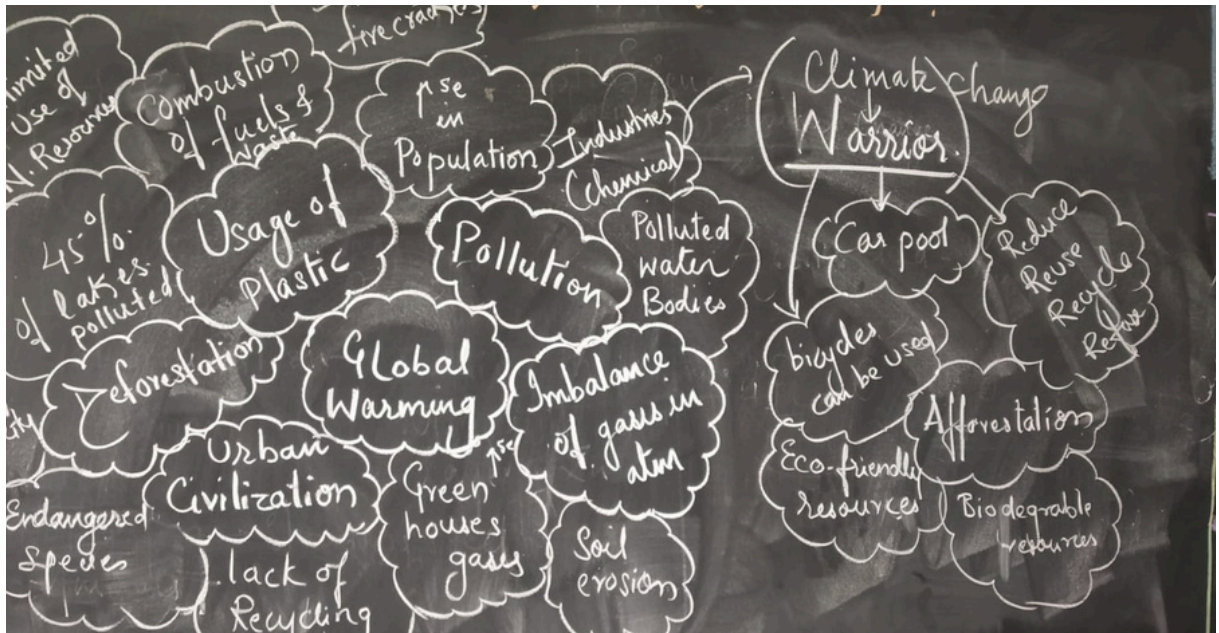 fire crackers
Limited
Use of
N. Resources
Combustion
of fuels &
waste
↑se
in
Population
Industries
(chemical)
Climate change
Warrior.
45%
of lakes
polluted
Usage of
Plastic
Pollution
Polluted
water
Bodies
Car pool
Reduce
Reuse
Recycle
Refuse
Deforestation
Global
Warming
Imbalance
of gases in
atm
bicycles
can be used
Afforestation
Urban
Civilization
↑se
Green
houses
gases
Eco-friendly
resources
Biodegrable
resources
Endangered
Species
lack of
Recycling
Soil
erosion